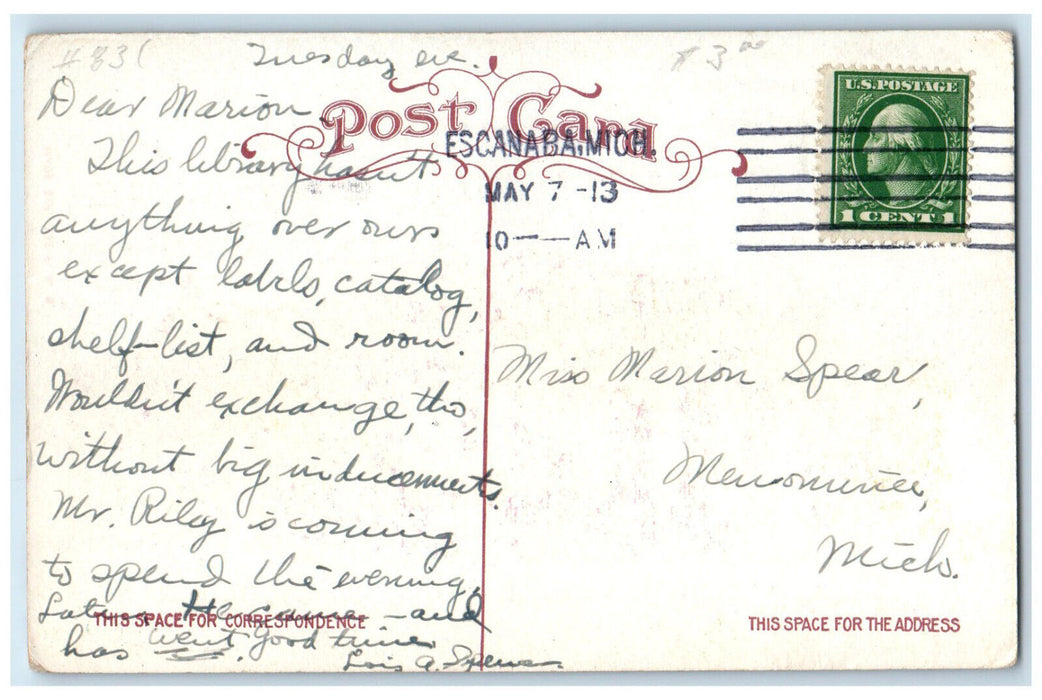 #831
$3.00
Tuesday eve.
Dear Marion
This library hasn't
anything over ours
except labels, catalog,
shelf-list, and room.
Wouldn't exchange, tho,
without big inducements.
Mr. Riley is coming
to spend the evening.
Later He came - and
has went. Good time
Lois A. Spencer
Post Card
THIS SPACE FOR CORRESPONDENCE
ESCANABA, MICH.
MAY 7 -13
10 — AM
U.S. POSTAGE
1 CENT 1
Miss Marion Spear,
Menominee,
Mich.
THIS SPACE FOR THE ADDRESS